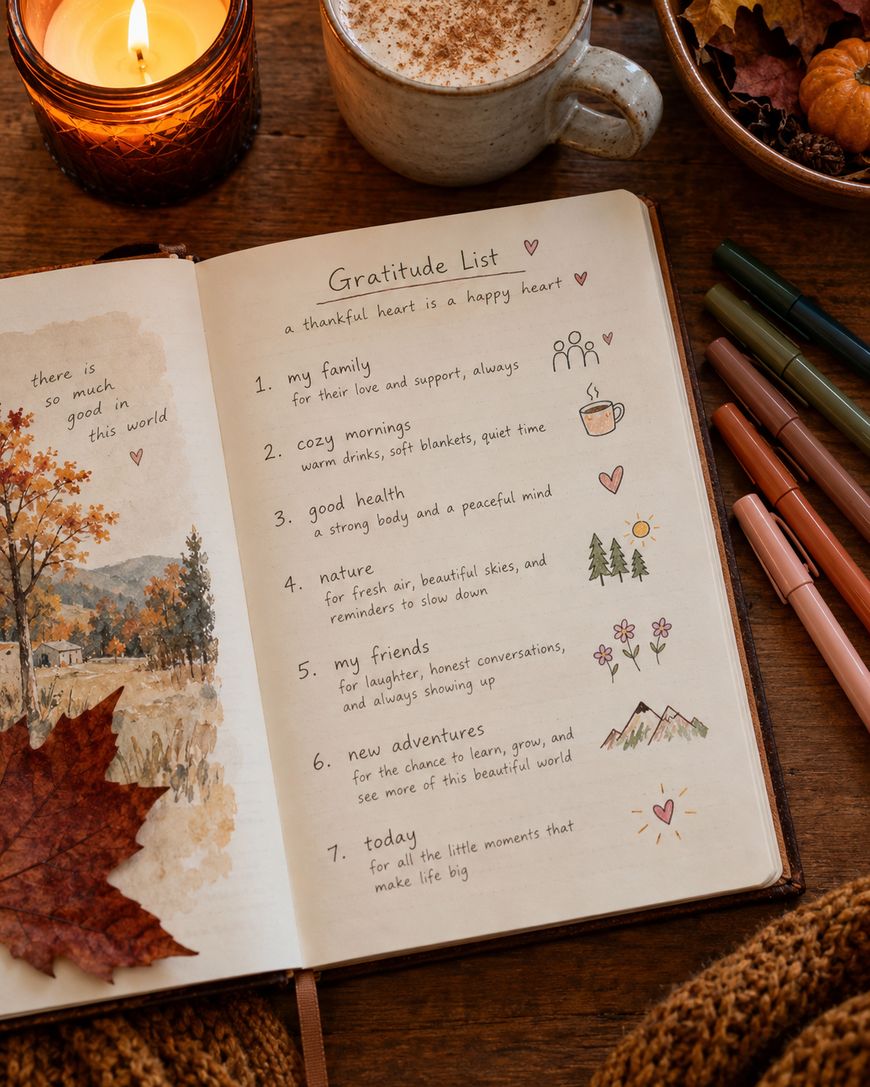 there is
so much
good in
this world
Gratitude List
a thankful heart is a happy heart
1. my family
for their love and support, always
2. cozy mornings
warm drinks, soft blankets, quiet time
3. good health
a strong body and a peaceful mind
4. nature
for fresh air, beautiful skies, and
reminders to slow down
5. my friends
for laughter, honest conversations,
and always showing up
6. new adventures
for the chance to learn, grow, and
see more of this beautiful world
7. today
for all the little moments that
make life big